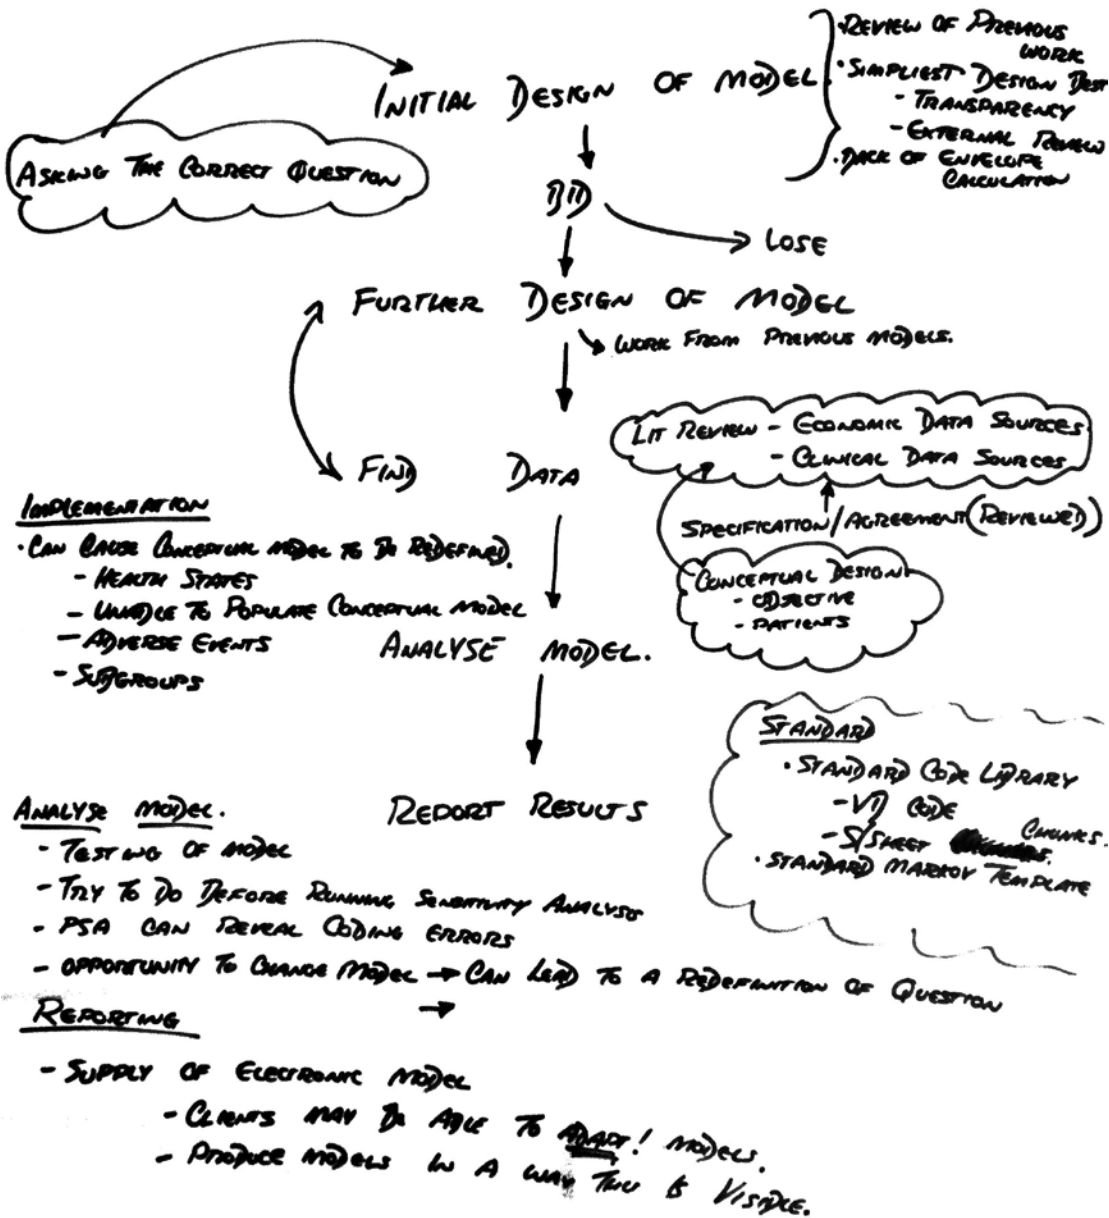 INITIAL DESIGN OF MODEL
• REVIEW OF PREVIOUS
WORK
• SIMPLIEST DESIGN BEST
- TRANSPARENCY
- EXTERNAL REVIEW
• BACK OF ENVELOPE
CALCULATION
ASKING THE CORRECT QUESTION
BID
LOSE
FURTHER DESIGN OF MODEL
WORK FROM PREVIOUS MODELS.
FIND DATA
LIT REVIEW - ECONOMIC DATA SOURCES
- CLINICAL DATA SOURCES
SPECIFICATION/AGREEMENT (REVIEWED)
CONCEPTUAL DESIGN
- OBJECTIVE
- PATIENTS
IMPLEMENTATION
• CAN CAUSE CONCEPTUAL MODEL TO BE REDEFINED.
- HEALTH STATES
- UNABLE TO POPULATE CONCEPTUAL MODEL
- ADVERSE EVENTS
- SUBGROUPS
ANALYSE MODEL.
STANDARD
• STANDARD CODE LIBRARY
- VB CODE
- S/SHEET CHUNKS.
• STANDARD MARKOV TEMPLATE
REPORT RESULTS
ANALYSE MODEL.
- TESTING OF MODEL
- TRY TO DO BEFORE RUNNING SENSITIVITY ANALYSIS
- PSA CAN REVEAL CODING ERRORS
- OPPORTUNITY TO CHANGE MODEL → CAN LEAD TO A REDEFINITION OF QUESTION
→
REPORTING
- SUPPLY OF ELECTRONIC MODEL
- CLIENTS MAY BE ABLE TO ADAPT! MODELS.
- PRODUCE MODELS IN A WAY THIS IS VISIBLE.